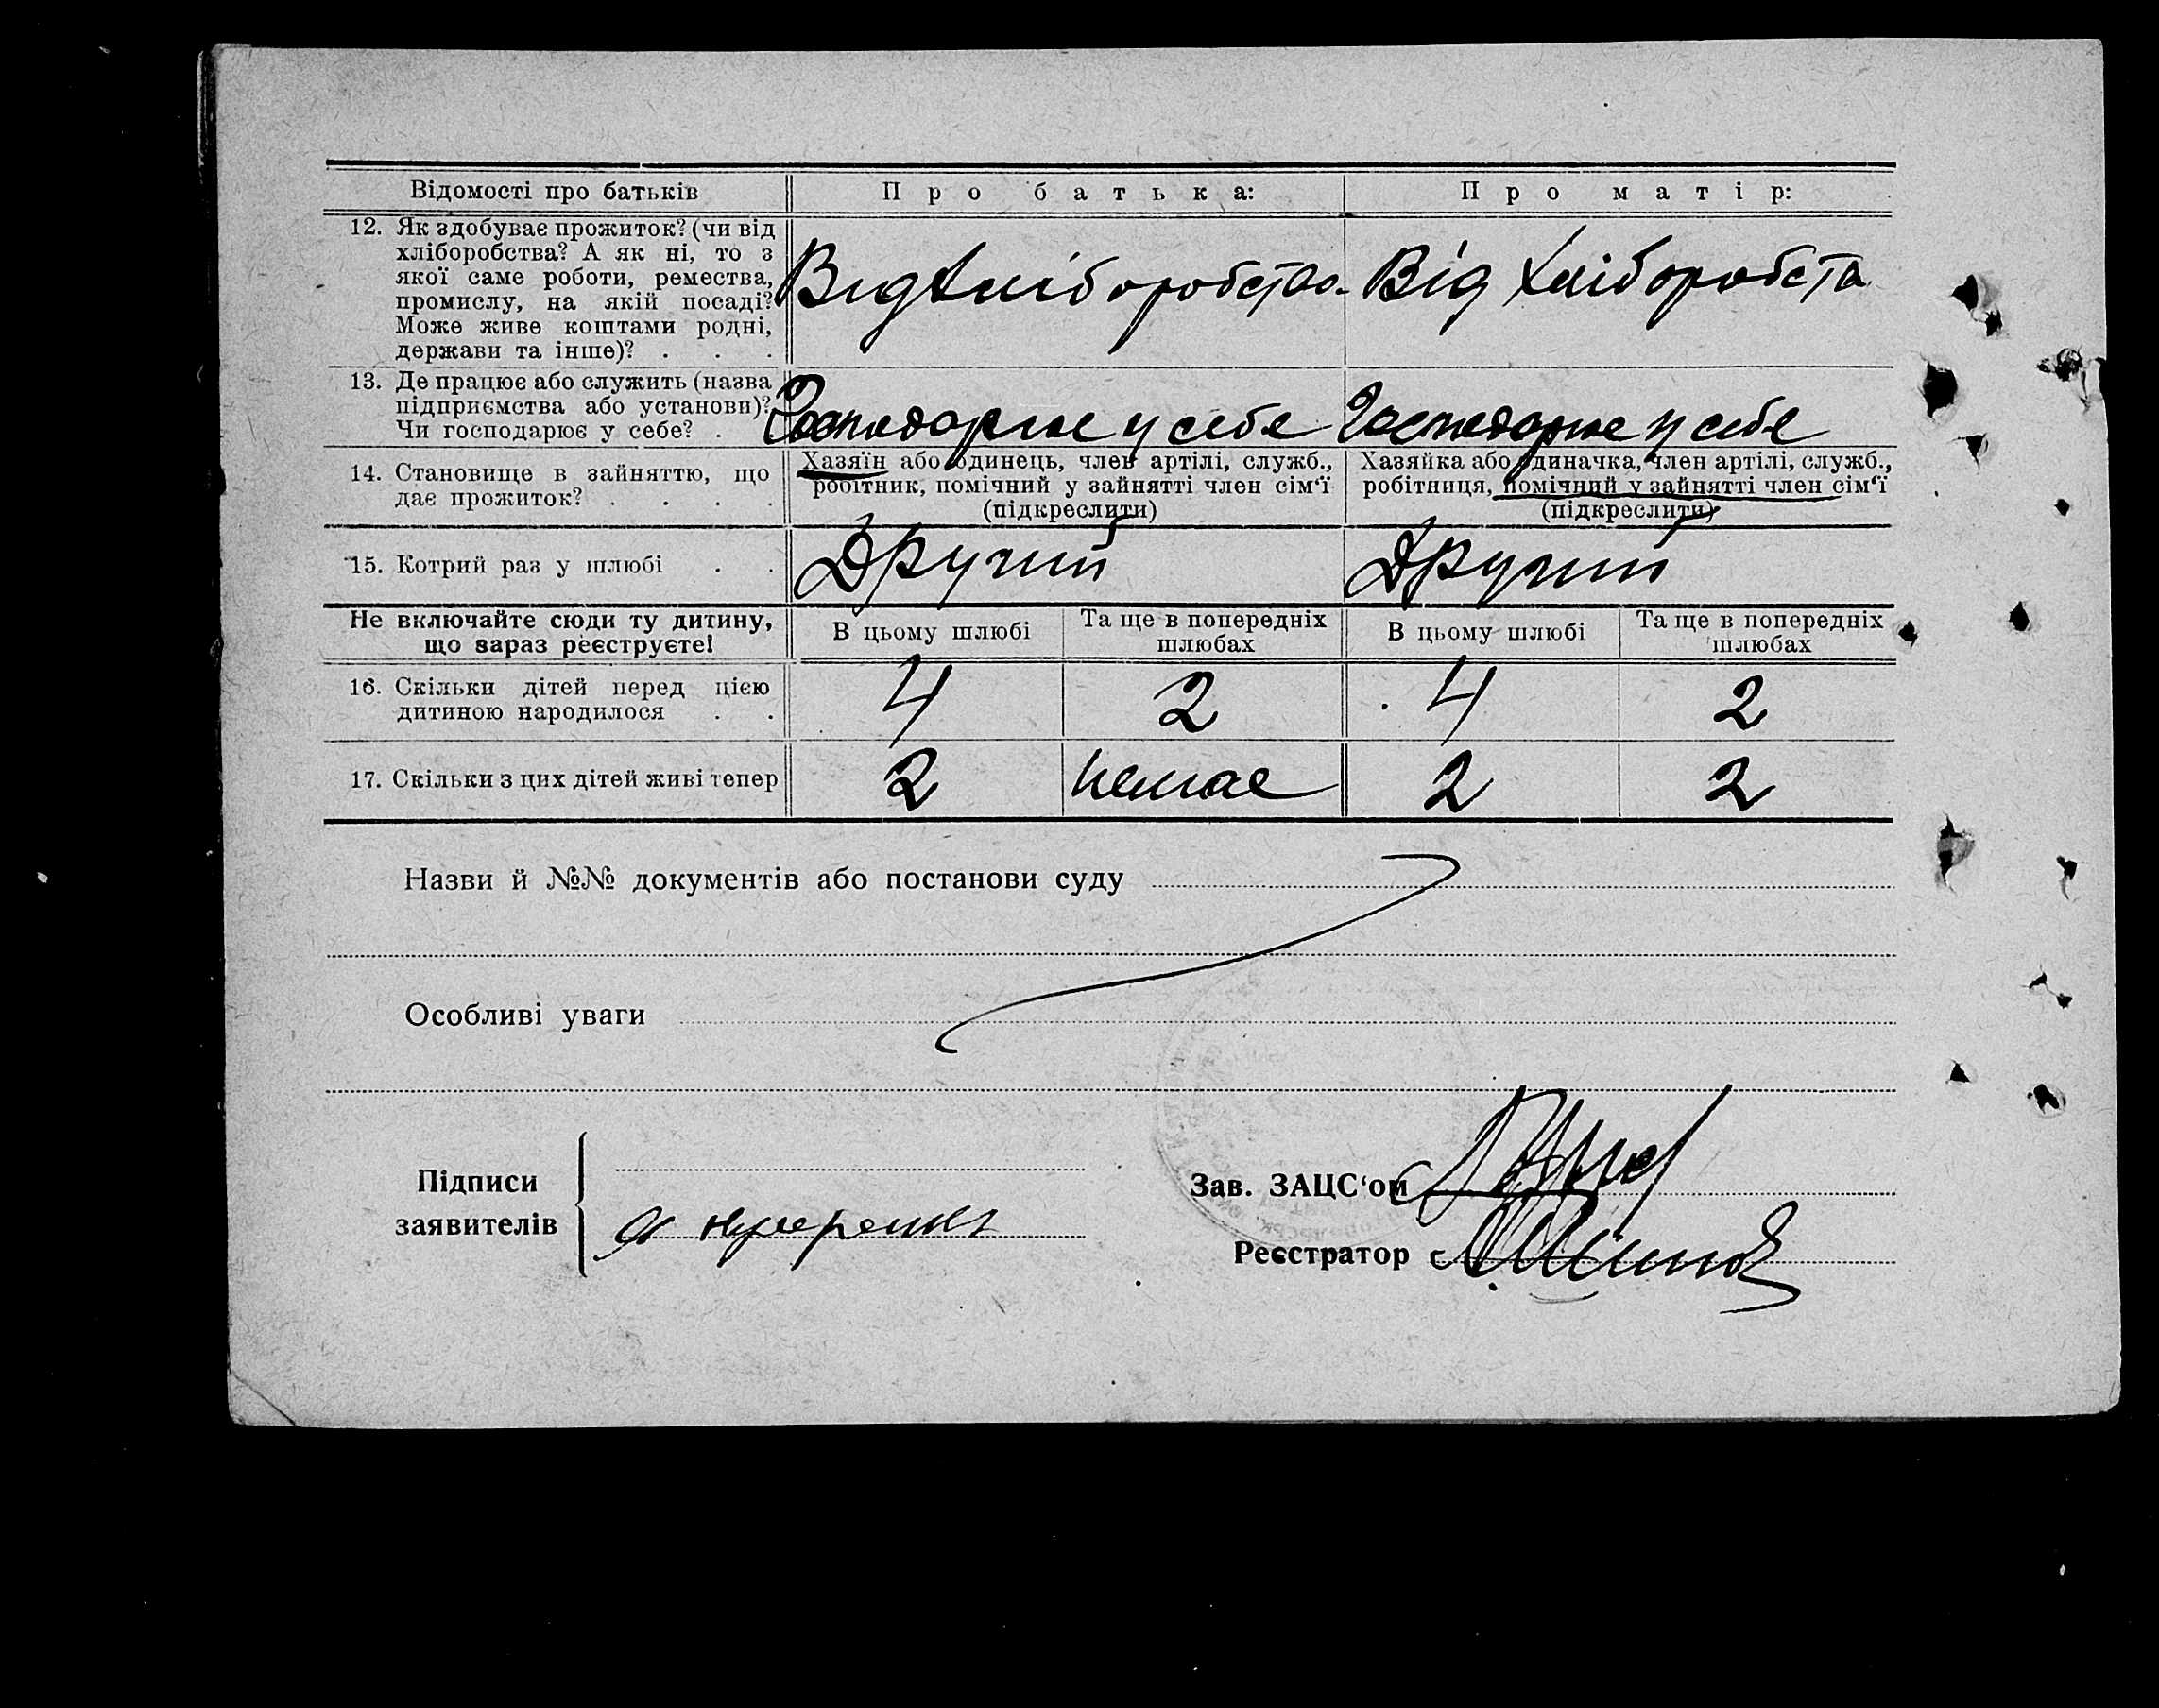 Відомості про батьків
Про батька:
Про матір:
12. Як здобуває прожиток? (чи від
хліборобства? А як ні, то з
якої саме роботи, ремества,
промислу, на якій посаді?
Може живе коштами родні,
держави та інше)? . . .
Від Хліборобства
Від Хліборобста
13. Де працює або служить (назва
підприємства або установи)?
Чи господарює у себе? .
Господарює у себе
Господарює у себе
14. Становище в зайняттю, що
дає прожиток? . . . .
Хазяїн або одинець, член артілі, служб.,
робітник, помічний у зайнятті член сім‘ї
(підкреслити)
Хазяйка або одиначка, член артілі, служб.,
робітниця, помічний у зайнятті член сім‘ї
(підкреслити)
15. Котрий раз у шлюбі . .
Другий
Другий
Не включайте сюди ту дитину,
що зараз реєструєте!
В цьому шлюбі
Та ще в попередніх
шлюбах
В цьому шлюбі
Та ще в попередніх
шлюбах
16. Скільки дітей перед цією
дитиною народилося . .
4
2
4
2
17. Скільки з цих дітей живі тепер
2
немає
2
2
Назви й №№ документів або постанови суду
Особливі уваги
Підписи
заявителів
Зав. ЗАЦС‘ом
Реєстратор